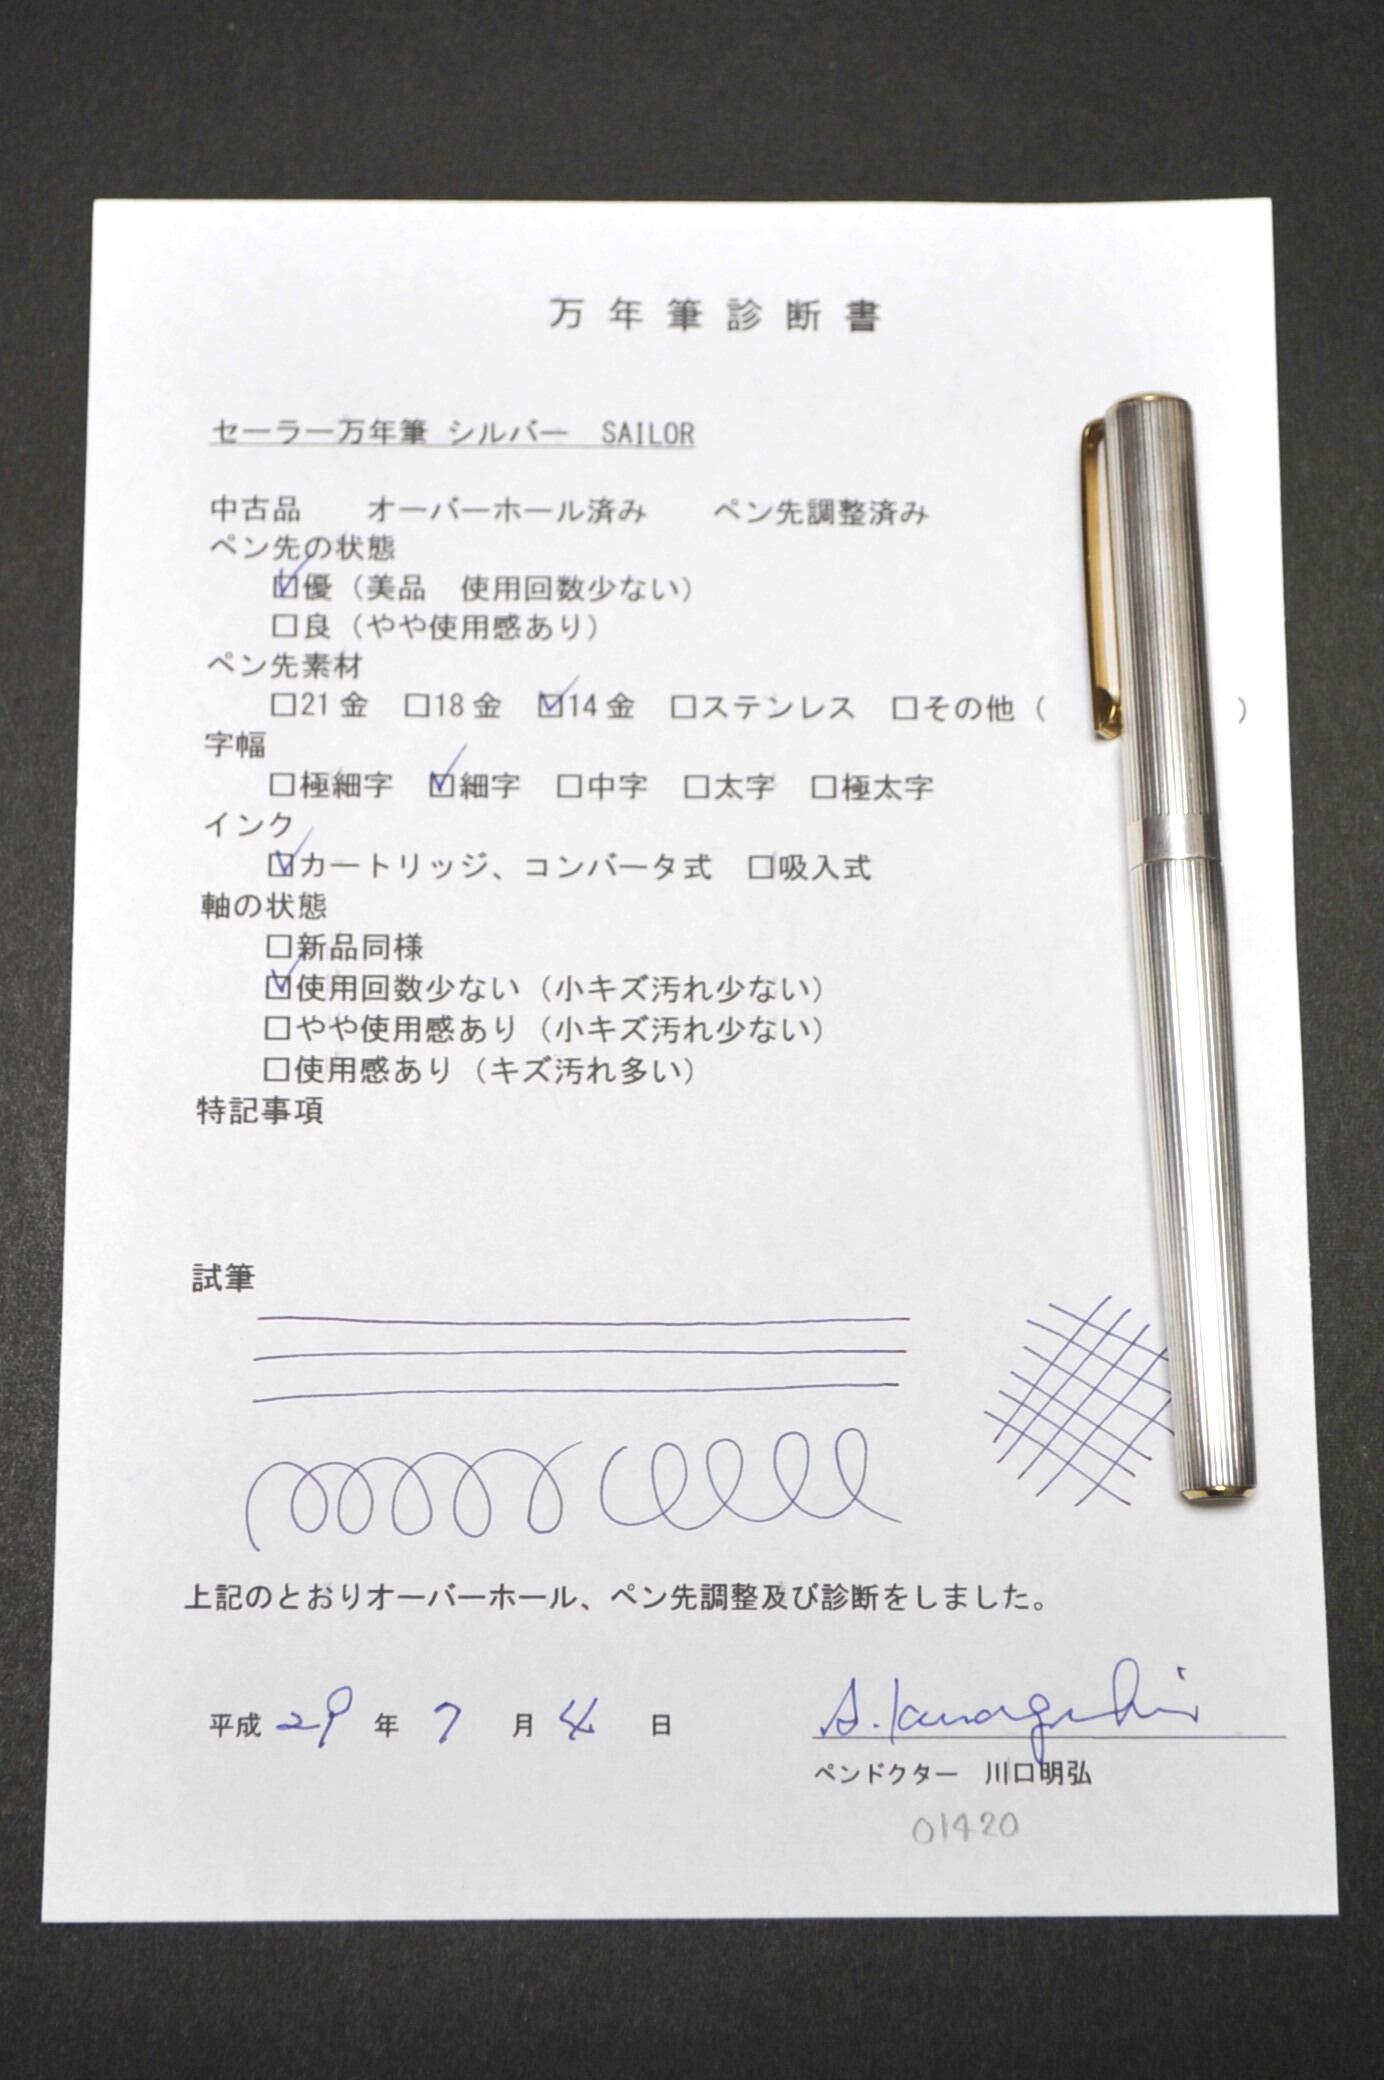 万年筆診断書
セーラー万年筆 シルバー SAILOR
中古品 オーバーホール済み ペン先調整済み
ペン先の状態
☑優（美品 使用回数少ない）
□良（やや使用感あり）
ペン先素材
□21金 □18金 ☑14金 □ステンレス □その他（ ）
字幅
□極細字 ☑細字 □中字 □太字 □極太字
インク
☑カートリッジ、コンバータ式 □吸入式
軸の状態
□新品同様
☑使用回数少ない（小キズ汚れ少ない）
□やや使用感あり（小キズ汚れ少ない）
□使用感あり（キズ汚れ多い）
特記事項
試筆
上記のとおりオーバーホール、ペン先調整及び診断をしました。
平成 29 年 7 月 4 日
A. Kawaguchi
ペンドクター 川口明弘
01420